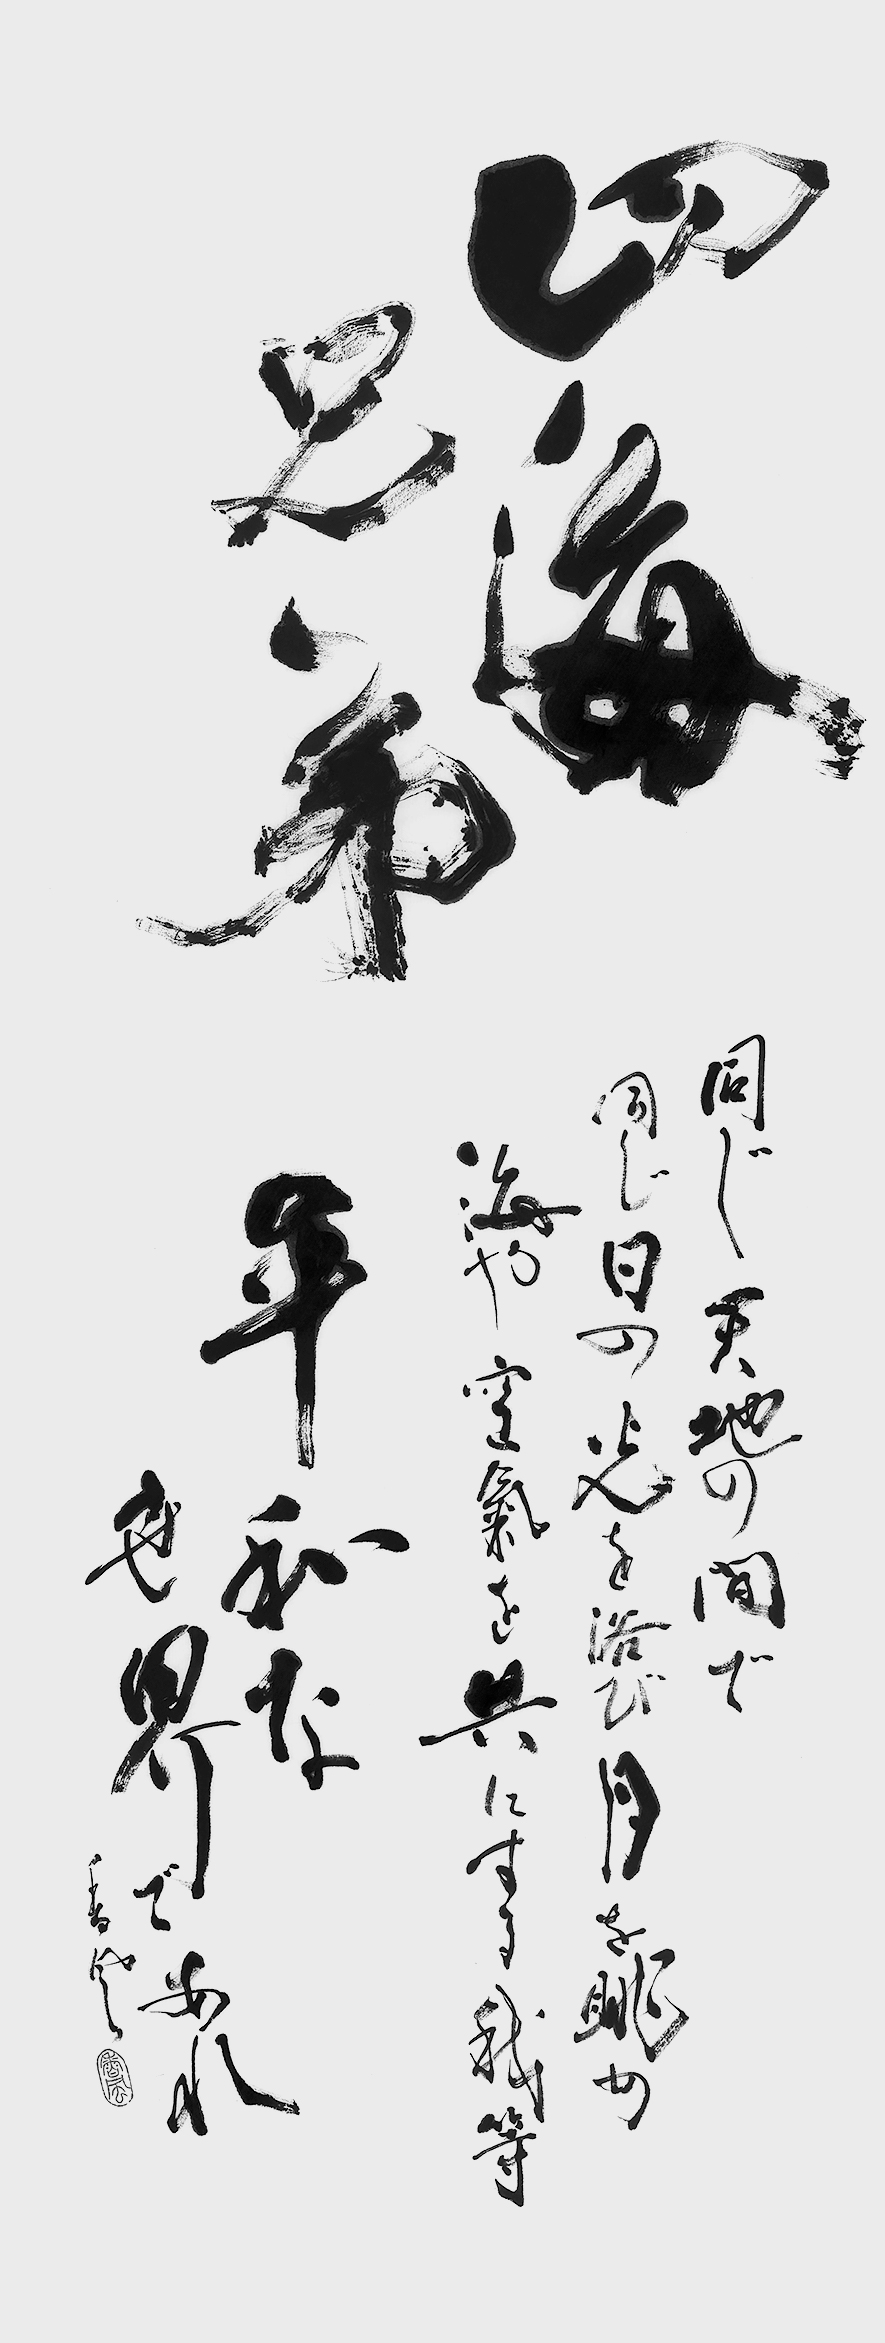 四海
兄弟
同じ天地の間で
同じ日の光を浴び月を眺め
海や空氣を共に生きる我等
平和な
世界
であれ
香雪